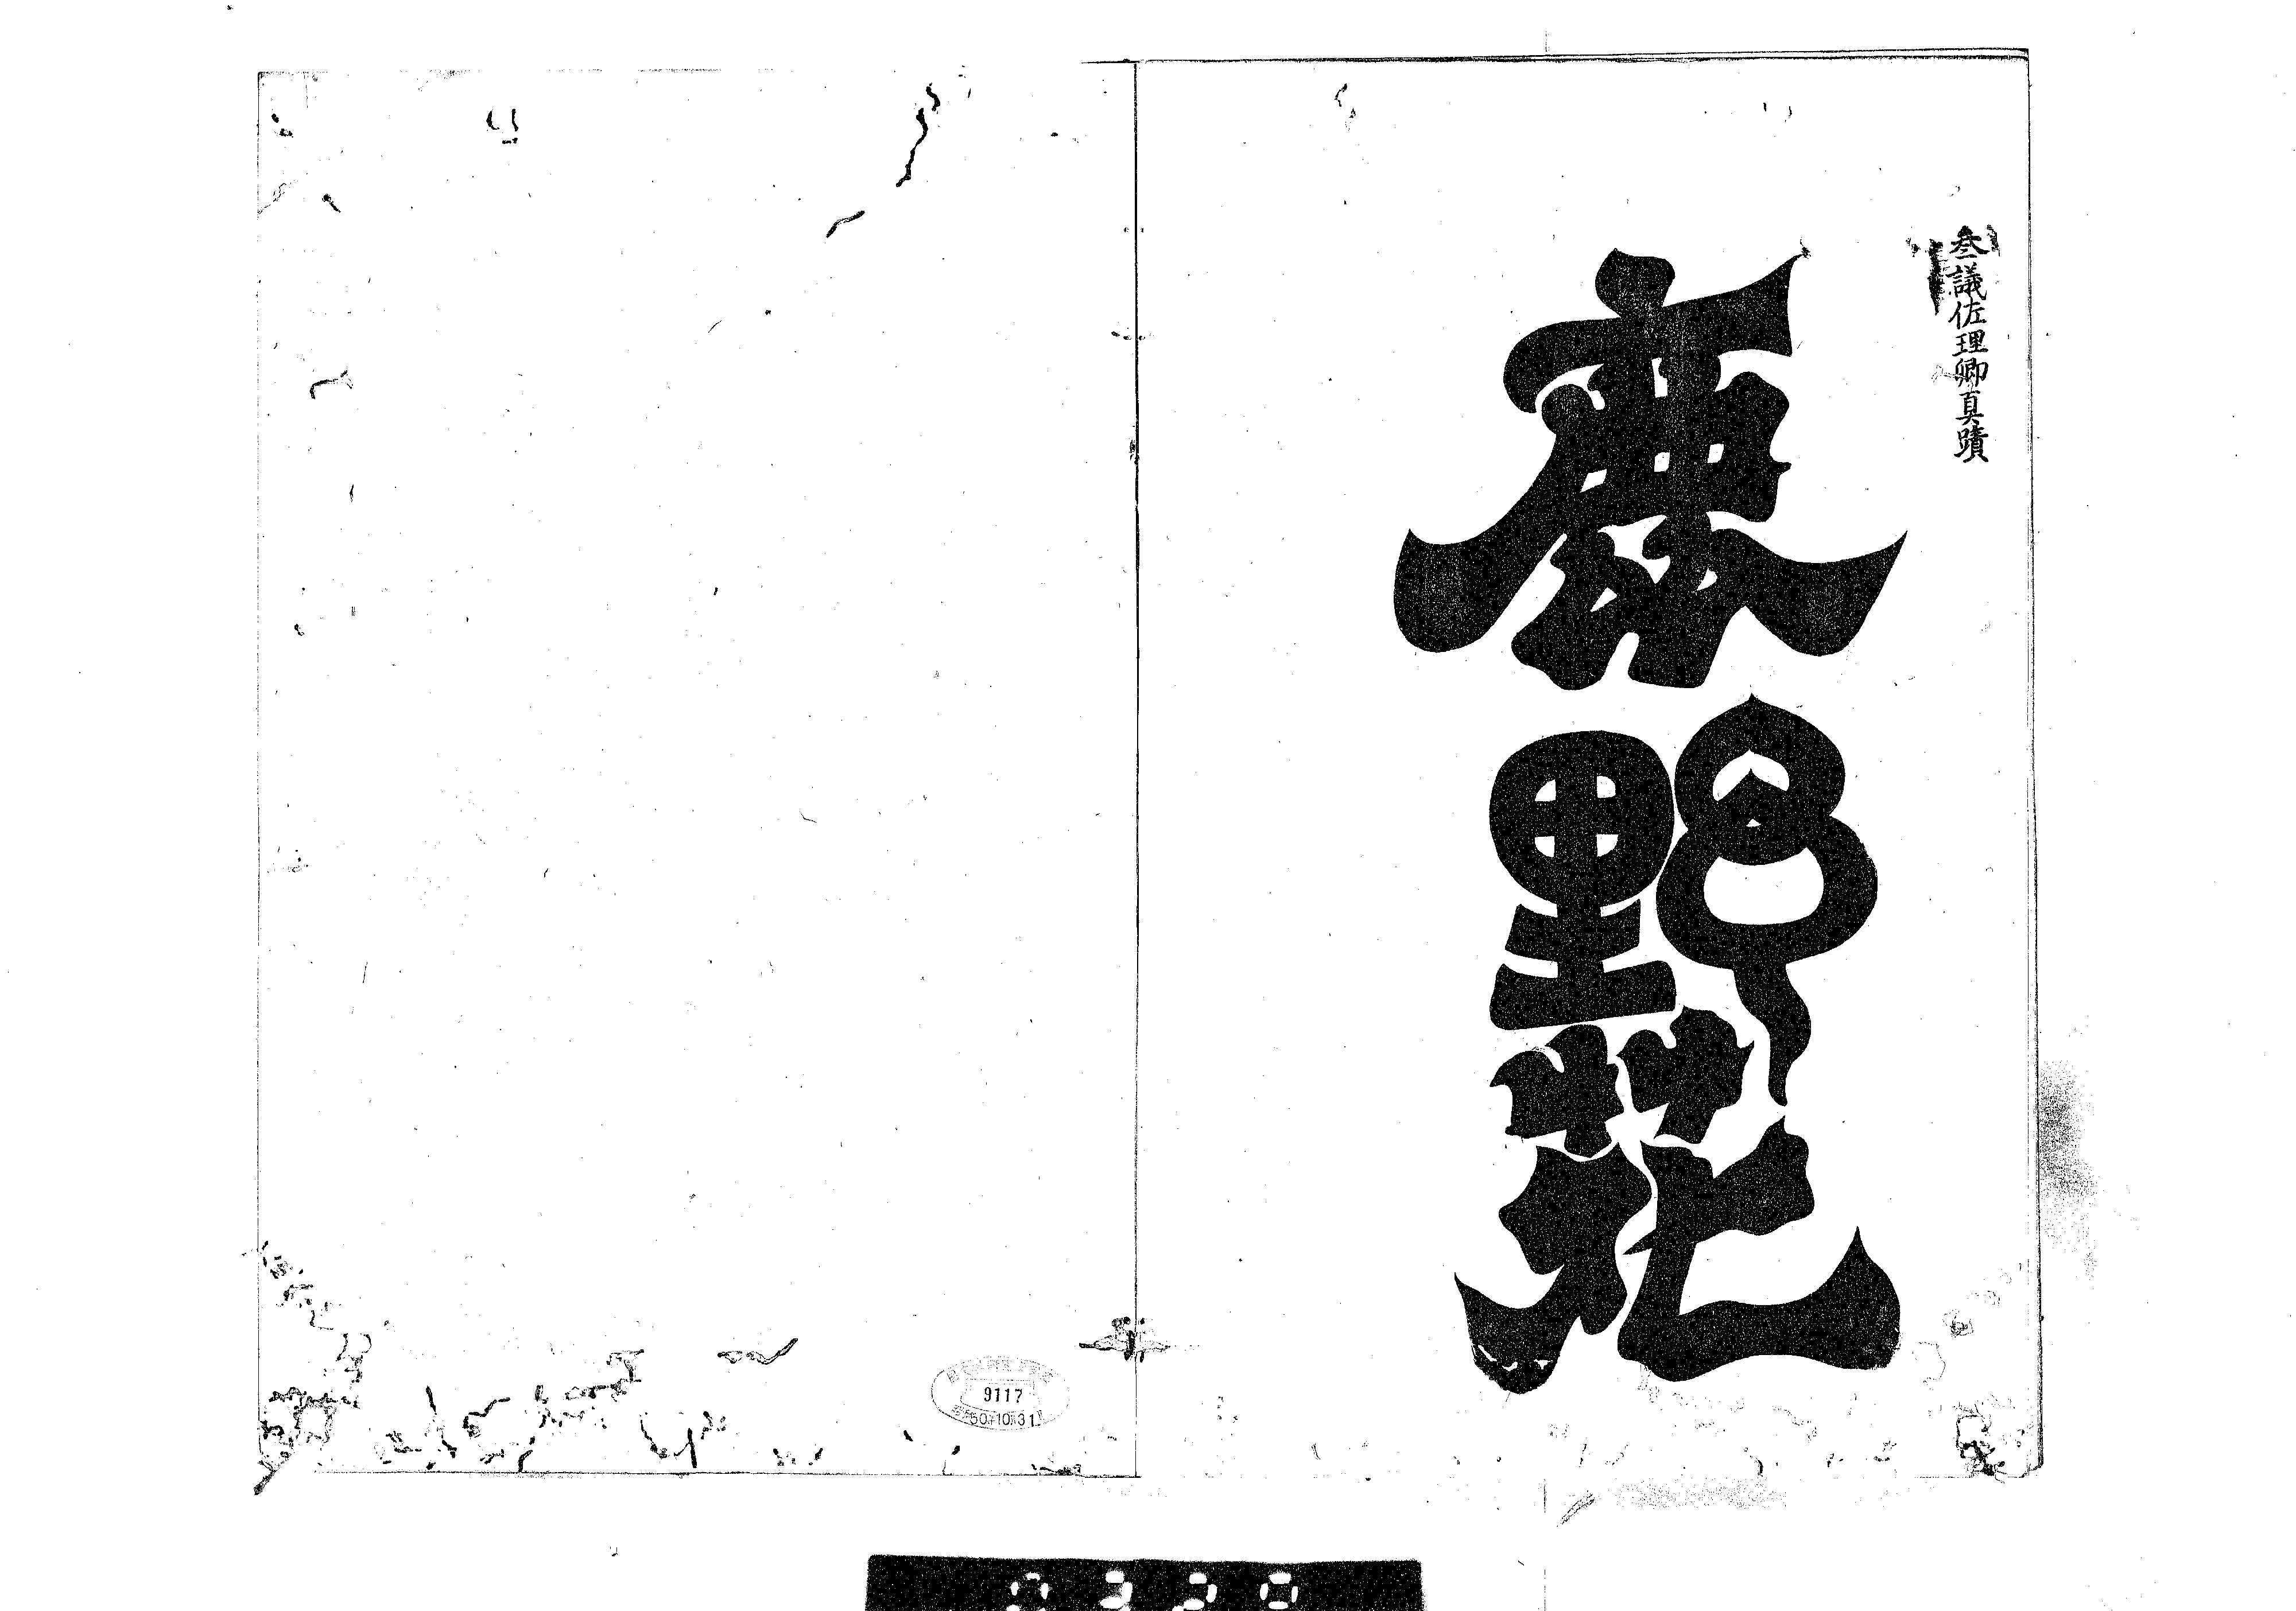 叅議佐理卿真蹟
鹿野苑
9117
50.10.31